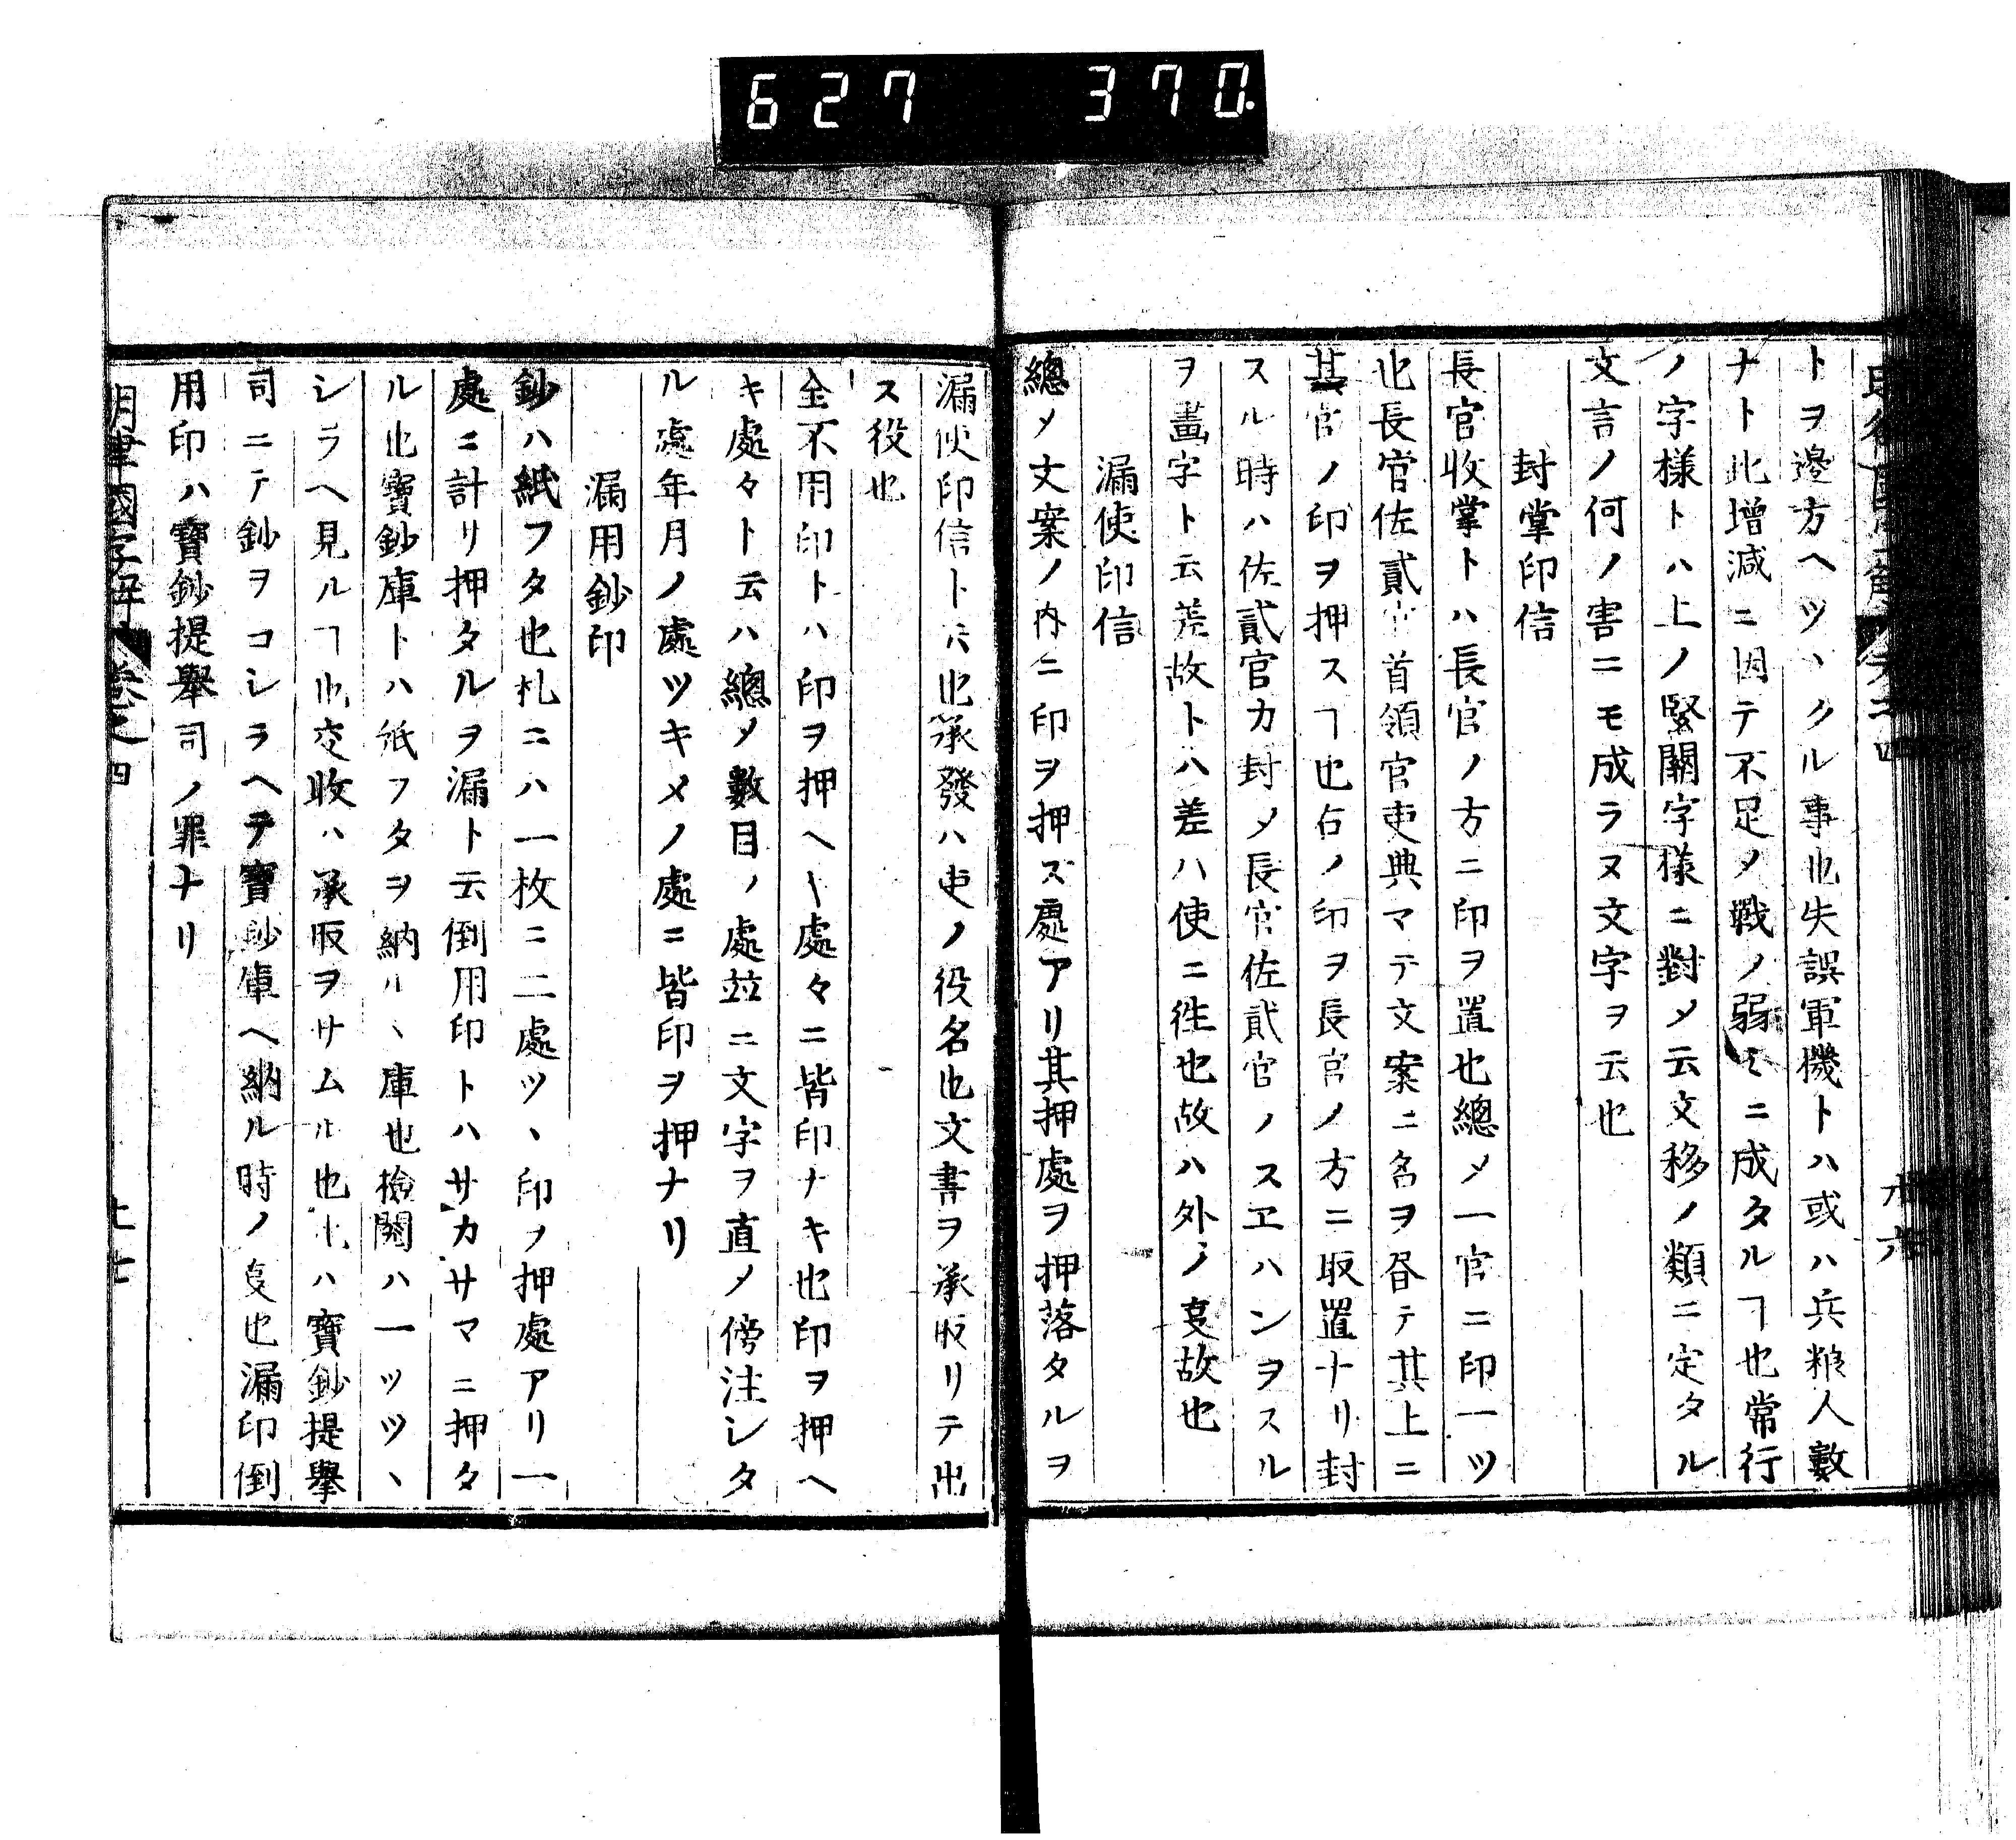 627 370.
トヲ邊方ヘツヽクル事也失誤軍機トハ或ハ兵粮人數
ナト此増減ニ因テ不足メ戰ノ弱ミニ成タルヿ也常行
ノ字様トハ上ノ緊關字様ニ對メ云文移ノ類ニ定タル
文言ノ何ノ害ニモ成ラヌ文字ヲ云也
封掌印信
長官收掌トハ長官ノ方ニ印ヲ置也總メ一官ニ印一ツ
也長官佐貳官首領官吏典マテ文案ニ名ヲ昏テ其上ニ
其官ノ印ヲ押スヿ也右ノ印ヲ長官ノ方ニ取置ナリ封
スル時ハ佐貳官カ封メ長官佐貳官ノスヱハンヲスル
ヲ畫字ト云差故トハ差ハ使ニ徃也故ハ外ノ叓故也
漏使印信
總メ文案ノ内ニ印ヲ押ス處アリ其押處ヲ押落タルヲ
漏使印信ト云也承發ハ吏ノ役名也文書ヲ承取リテ出
ス役也
全不用印トハ印ヲ押ヘキ處々ニ皆印ナキ也印ヲ押ヘ
キ處々ト云ハ總メ數目ノ處並ニ文字ヲ直メ傍注シタ
ル處年月ノ處ツキメノ處ニ皆印ヲ押ナリ
漏用鈔印
鈔ハ紙フタ也札ニハ一枚ニ二處ツヽ印ヲ押處アリ一
處ニ計リ押タルヲ漏ト云倒用印トハサカサマニ押タ
ル也寶鈔庫トハ紙フタヲ納ルヽ庫也檢閲ハ一ツツヽ
シラヘ見ルヿ也交收ハ承取ヲサムル也是ハ寶鈔提擧
司ニテ鈔ヲコシラヘテ寶鈔庫ヘ納ル時ノ叓也漏印倒
用印ハ寶鈔提擧司ノ罪ナリ
明律國字解 卷之四